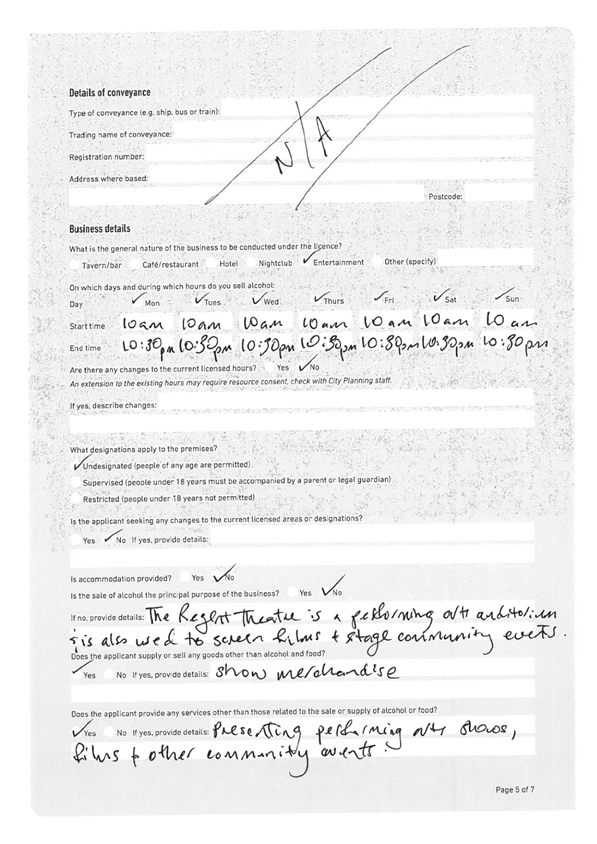 Details of conveyance
Type of conveyance (e.g. ship, bus or train):
Trading name of conveyance:
Registration number:
Address where based:
Postcode:
N/A
Business details
What is the general nature of the business to be conducted under the licence?
Tavern/bar Café/restaurant Hotel Nightclub ✓ Entertainment Other (specify)
On which days and during which hours do you sell alcohol:
Day ✓ Mon ✓ Tues ✓ Wed ✓ Thurs ✓ Fri ✓ Sat ✓ Sun
Start time 10am 10am 10am 10am 10am 10am 10am
End time 10:30pm 10:30pm 10:30pm 10:30pm 10:30pm 10:30pm 10:30pm
Are there any changes to the current licensed hours? Yes ✓ No
An extension to the existing hours may require resource consent, check with City Planning staff.
If yes, describe changes:
What designations apply to the premises?
✓ Undesignated (people of any age are permitted)
Supervised (people under 18 years must be accompanied by a parent or legal guardian)
Restricted (people under 18 years not permitted)
Is the applicant seeking any changes to the current licensed areas or designations?
Yes ✓ No If yes, provide details:
Is accommodation provided? Yes ✓ No
Is the sale of alcohol the principal purpose of the business? Yes ✓ No
If no, provide details: The Regent Theatre is a performing arts auditorium
& is also used to screen films + stage community events.
Does the applicant supply or sell any goods other than alcohol and food?
✓ Yes No If yes, provide details: show merchandise
Does the applicant provide any services other than those related to the sale or supply of alcohol or food?
✓ Yes No If yes, provide details: Presenting performing arts shows,
films + other community events.
Page 5 of 7